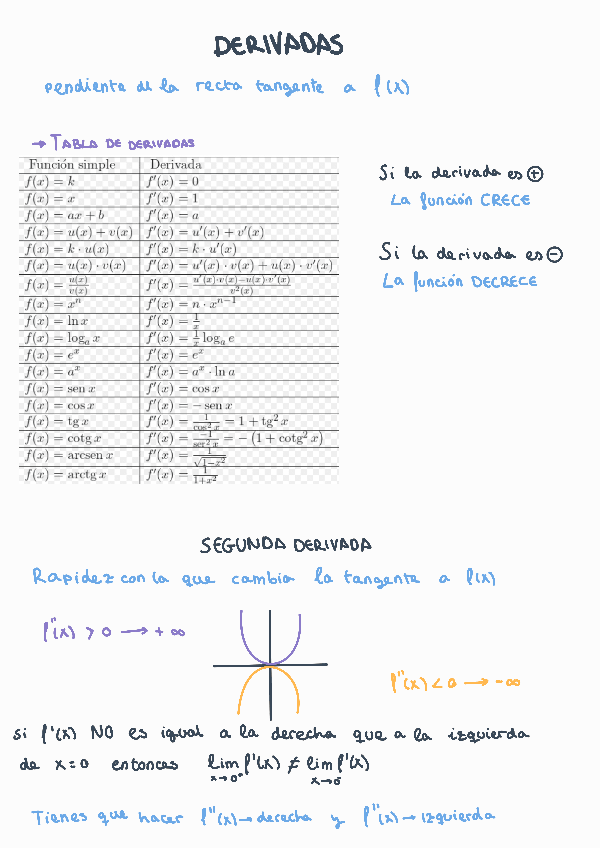 DERIVADAS
pendiente de la recta tangente a f(x)
→ TABLA DE DERIVADAS
Función simple Derivada
f(x) = k f'(x) = 0
f(x) = x f'(x) = 1
f(x) = ax + b f'(x) = a
f(x) = u(x) + v(x) f'(x) = u'(x) + v'(x)
f(x) = k · u(x) f'(x) = k · u'(x)
f(x) = u(x) · v(x) f'(x) = u'(x) · v(x) + u(x) · v'(x)
f(x) = u(x)/v(x) f'(x) = u'(x)·v(x)−u(x)·v'(x)/v²(x)
f(x) = xⁿ f'(x) = n · xⁿ⁻¹
f(x) = ln x f'(x) = 1/x
f(x) = logₐ x f'(x) = 1/x logₐ e
f(x) = eˣ f'(x) = eˣ
f(x) = aˣ f'(x) = aˣ · ln a
f(x) = sen x f'(x) = cos x
f(x) = cos x f'(x) = − sen x
f(x) = tg x f'(x) = 1/cos² x = 1 + tg² x
f(x) = cotg x f'(x) = −1/sen² x = − (1 + cotg² x)
f(x) = arcsen x f'(x) = 1/√(1−x²)
f(x) = arctg x f'(x) = 1/1+x²
Si la derivada es ⊕
La función CRECE
Si la derivada es ⊖
La función DECRECE
SEGUNDA DERIVADA
Rapidez con la que cambia la tangente a f(x)
f''(x) > 0 → + ∞
f''(x) < 0 → - ∞
si f'(x) NO es igual a la derecha que a la izquierda
de x=0 entonces lim x→0⁺ f'(x) ≠ lim x→0⁻ f'(x)
Tienes que hacer f''(x) → derecha y f''(x) → izquierda